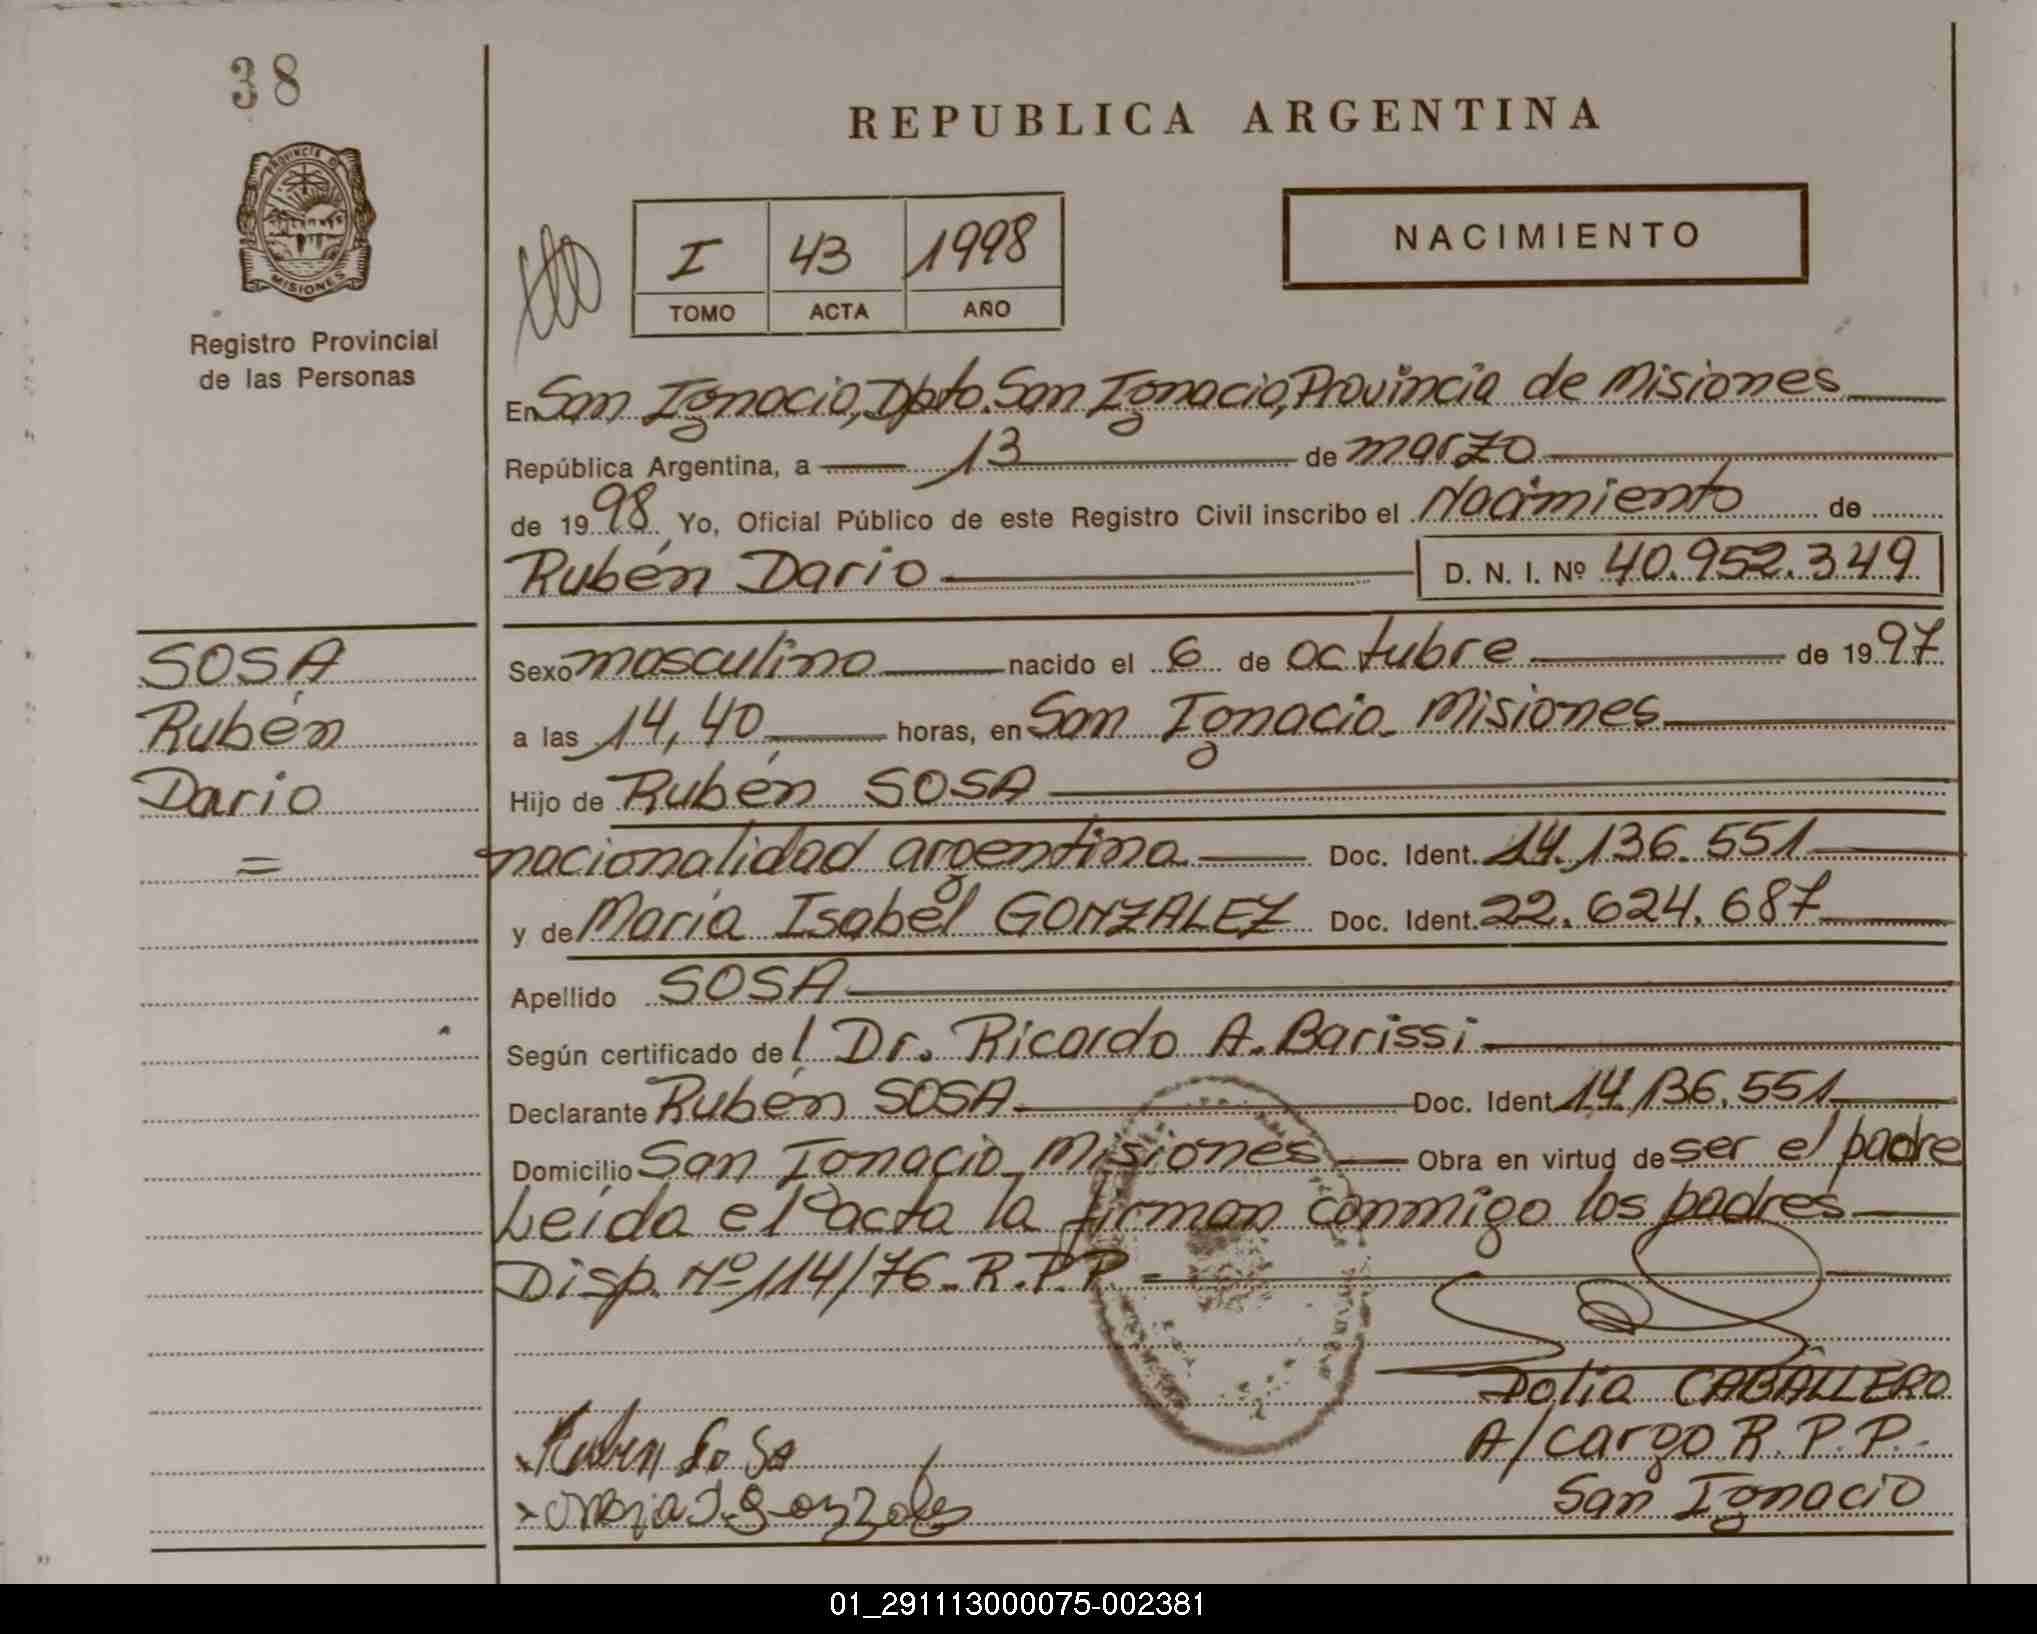 38
PROVINCIA DE
MISIONES
Registro Provincial
de las Personas
REPUBLICA ARGENTINA
I 43 1998
TOMO ACTA AÑO
NACIMIENTO
En San Ignacio, Dpto. San Ignacio, Provincia de Misiones
República Argentina, a 13 de marzo
de 1998 Yo, Oficial Público de este Registro Civil inscribo el Nacimiento de
Rubén Dario D. N. I. Nº 40.952.349
SOSA
Rubén
Dario
=
Sexo masculino nacido el 6 de octubre de 1997
a las 14,40 horas, en San Ignacio - Misiones
Hijo de Rubén SOSA
nacionalidad argentina Doc. Ident. 14.136.551
y de María Isabel GONZALEZ Doc. Ident. 22.624.687
Apellido SOSA
Según certificado del Dr. Ricardo A. Barissi
Declarante Rubén SOSA Doc. Ident. 14.136.551
Domicilio San Ignacio - Misiones Obra en virtud de ser el padre
Leída el acta la firman conmigo los padres
Disp. Nº 114/76 - R.P.P.
CABALLERO
A/cargo R.P.P.
San Ignacio
Ruben So Sa
01_291113000075-002381